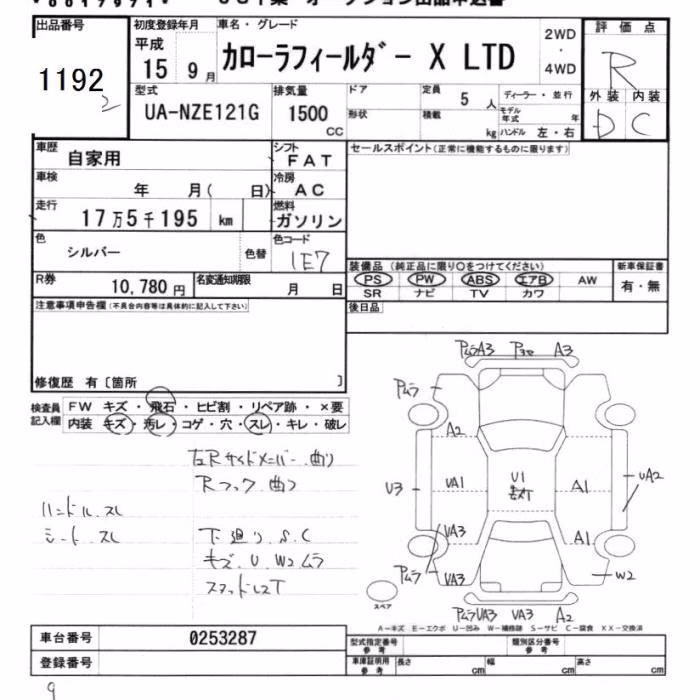 出品番号
1192
2
初度登録年月
平成
15 9月
車名・グレード
カローラフィールダー X LTD
2WD
・
4WD
評価点
R
外装 内装
D C
型式
UA-NZE121G
排気量
1500
cc
ドア
形状
定員 5 人
積載 kg
ディーラー・並行
モデル年式 年
ハンドル 左・右
車歴
自家用
シフト
FAT
車検
年 月( 日)
冷房
AC
走行
17万5千195 km
燃料
ガソリン
色
シルバー
色替
色コード
1E7
R券
10,780円
名変通知期限
月 日
セールスポイント(正常に機能するものに限ります)
装備品 (純正品に限り〇をつけてください)
PS PW ABS エアB AW
SR ナビ TV カワ
新車保証書
有・無
後日品
注意事項申告欄(不具合内容等は具体的に記入して下さい)
修復歴 有〔箇所 〕
検査員
記入欄
FW キズ・飛石・ヒビ割・リペア跡・×要
内装 キズ・汚レ・コゲ・穴・スレ・キレ・破レ
左Rサイドメンバー 曲り
Rフック 曲り
ハンドル スレ
シート スレ
下廻り S.C
キズ U W2 ムラ
スタッドレスT
PムラA3 Pヨセ A3
Pムラ
A2
U3
UA1
U1
A1
UA2
UA3
A1
Pムラ
UA3
W2
PムラUA3 UA3 A2
スペア
A-キズ E-エクボ U-凹み W-補修跡 S-サビ C-腐食 XX-交換済
車台番号
0253287
登録番号
型式指定番号
参考
類別区分番号
参考
車庫証明用
参考
長さ cm 幅 cm 高さ cm
9